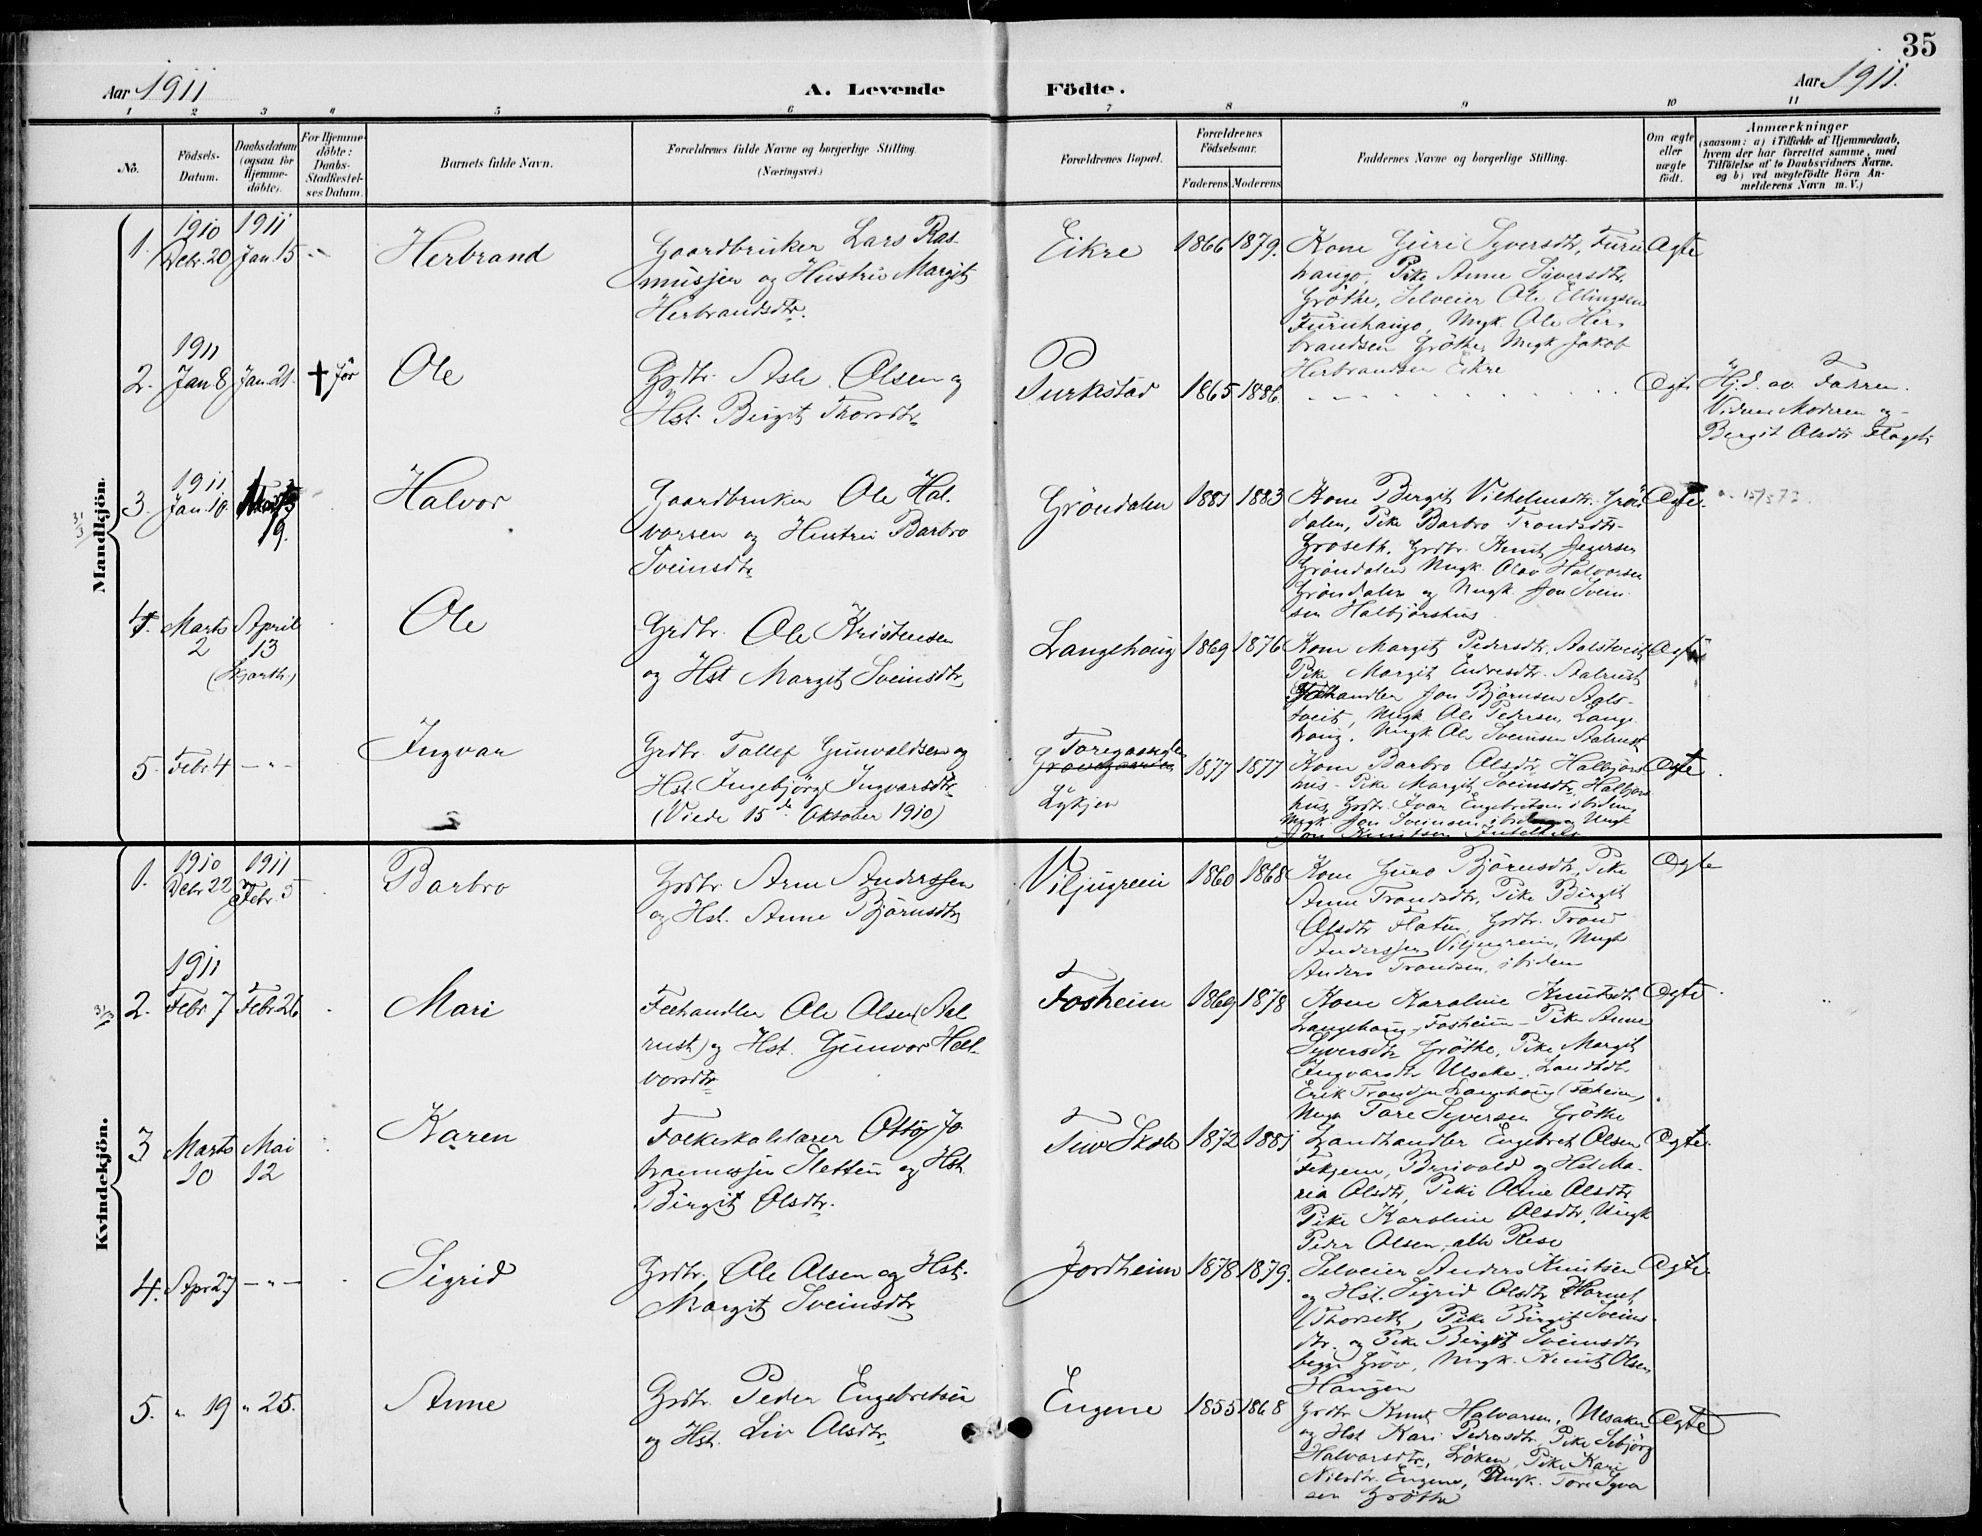 35
Aar 1911
A. Levende Födte.
Aar 1911.
1 2 3 4 5 6 7 8 9 10 11
No.
Födsels-Datum.
Daabsdatum (ogsaa for Hjemme-döbte).
For Hjemme-döbte: Daabs-Stadfestel-ses Datum.
Barnets fulde Navn.
Forældrenes fulde Navne og borgerlige Stilling. (Næringsvei.)
Forældrenes Bopæl.
Forældrenes Födselsaar.
Faderens Moderens
Faddernes Navne og borgerlige Stilling.
Om ægte eller uægte födt.
Anmærkninger
(saasom: a) i Tilfælde af Hjemmedaab, hvem der har forrettet samme, med Tilföielse af to Daabsvidners Navne. og b) ved uægtefödte Börn An-melderens Navn m. V.)
Mandkjön.
1. 1910 Debr. 20 1911 Jan. 15 Herbrand
Gaardbruker Lars Ras-
mussen og Hustru Margit
Herbrandsdtr.
Eikre 1866 1879.
Kone Guri Syversdtr, Furu
haugo, Pike Anne Syversdtr.
Gröthe, Selveier Ole Ellingsen
Furuhaugo, Ungk. Ole Her-
brandsen Gröthe, Ungk Jakob
Herbrandsen Eikre
Ægte
2. 1911 Jan 8 Jan. 21. † för Ole
Grdbr. Asle Olsen og
Hst. Birgit Thorsdtr
1865 1886.
Ægte
Hj.d. av Faren.
Vidner Moderen og
Bergit Olsdtr
3. 1911 Jan. 10. 19. Halvor
Gaardbruker Ole Hal-
vorsen og Hustru Barbro
Sveinsdtr
Gröndalen 1881 1883
Kone Bergit Vilhelmsdtr. Grön
dalen, Pike Barbro Trondsdtr-
Groseth, Grdbr. Knut
Gröndalen Ungk. Olav Halvorsen
Gröndalen og Ungk. Jon Svein-
sen Halbjörshus
Ægte.
4. Marts 2 April 13 Ole
Grdbr. Ole Kristensen
og Hst Margit Sveinsdtr
Langehaug 1869 1876
Kone Margit Pedersdtr.
Pike Margit Endresdtr. Aalrust
Feehandler Jon Björnsen Aals-
tveit, Ungk Ole Pedersen Lange
haug, Ungk Ole Sveinsen Aalrust
Ægte
5. Febr 4 - " - Ingvar
Grdbr. Tollef Gunvaldsen og
Hst. Ingebjörg Ingvarsdtr
(Viede 15de Oktober 1910)
Lykjen 1877 1877
Kone Barbro Olsdtr Halbjörs
hus - Pike Margit Sveinsdtr, Halbjörs
hus, Grdbr. Ivar Engebretsen ibidem,
Ungk. Jon Sveinsen ibidem og Ungk
Jon Knutsen
Ægte
Kvindekjön.
1. 1910 Debr. 22 1911 Febr. 5 Barbro
Grdbr Arne Anderssen
og Hst. Anne Björnsdtr
Viljugrein 1860 1868
Kone Guro Björnsdtr, Pike
Anne Trondsdtr, Pike Birgit
Olsdtr Flaten, Grdbr. Trond
Anderssen Viljugrein, Ungk
Anders Trondsen, ibidem
Ægte
2. 1911 Febr 7 Febr 26 Mari
Feehandler Ole Olsen (Aal-
rust) og Hst. Gunvor Hal-
vorsdtr
Fosheim 1869 1878
Kone Karoline Knutsdtr
Langehaug, Fosheim - Pike Anne
Syversdtr Gröthe, Pike Margit
Ingvarsdtr Ulsaker, Landhdl.
Erik Trondsen Langehaug (Fosheim,
Ungk Tore Syversen Gröthe
Ægte
3 Marts 10 Mai 12 Karen
Folkeskolelærer Otto Jo-
hannessen Sletten og Hst.
Birgit Olsdtr.
Tuv Skole 1872 1881
Landhandler Engebret Olsen
Bruvold og Hst Ma-
ria Olsdtr, Pike Oline Olsdtr
Pike Karoline Olsdtr, Ungk
Peder Olsen, alle
Ægte.
4. Apr 27 - " - Sigrid
Grdbr. Ole Olsen og Hst.
Margit Sveinsdtr
Jordheim 1878 1879.
Selveier Anders Knutsen
og Hst. Sigrid Olsdtr
Thorseth, Pike Birgit Sveins-
dtr. og Pike Birgit Sveinsdtr
begge Gröv, Ungk. Knut Olsen
Haugen
Ægte.
5. " 19 " 25. Anne
Grdbr. Peder Engebretsen
og Hst. Liv Olsdtr
Engene 1855 1868
Grdbr Knut Halvorsen, Ulsaker
og Hst Kari Pedersdtr. Pike Sebjörg
Halvorsdtr, Löken, Pike Kari
Nilsdtr. Engene, Ungk. Tore Syver
sen Gröthe
Ægte